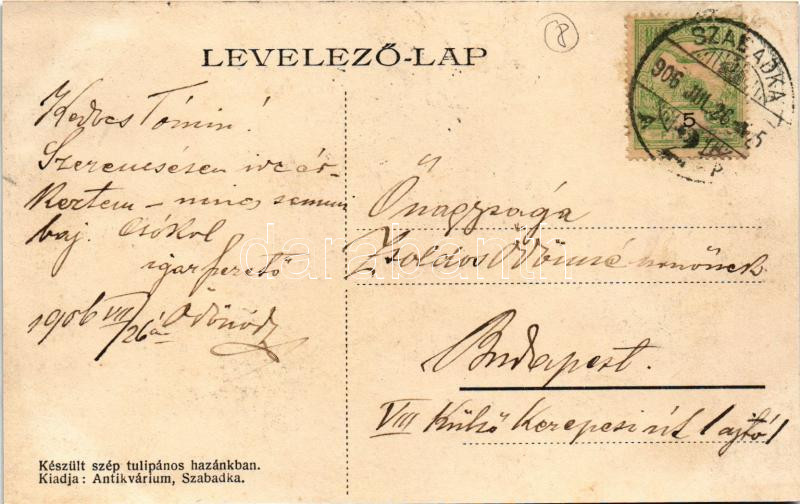 8
LEVELEZŐ-LAP
SZABADKA
906 JUL. 26
5
Kedves Tónim!
Szerencsésen ide ér-
keztem – nincs semmi
baj. Csókol
igaz szerető
1906 VII/26án Ödönöd
Őnagysága
Zsoldos Ödönné úrnőnek
Budapest.
VIII Külső Kerepesi út 1 ajtó 1
darabanth
Készült szép tulipános hazánkban.
Kiadja: Antikvárium, Szabadka.